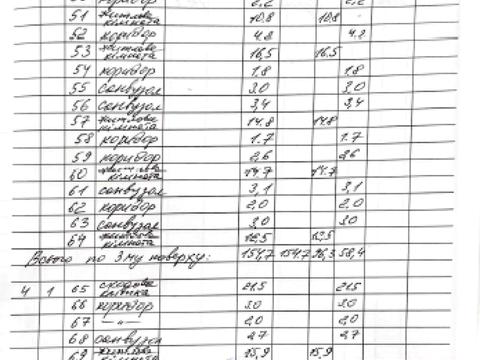 коридор 2,2 2,2
51 житлова кімната 10.8 10.8
52 коридор 4.2 4.2
53 житлова кімната 16,5 16,5
54 коридор 1.8 1.8
55 санвузол 3.0 3.0
56 санвузол 3,4 3,4
57 житлова кімната 14.8 14.8
58 коридор 1.7 1.7
59 коридор 2,6 2,6
60 житлова кімната 14.7 14.7
61 санвузол 3,1 3,1
62 коридор 2,0 2,0
63 санвузол 3,0 3.0
64 житлова кімната 12,5 12,5
Всього по 3му поверху: 154,7 154.7 96,3 58,4
4 1 65 сходова клітка 21.5 21.5
66 коридор 3.0 3.0
67 —"— 2.0 2.0
68 санвузол 2.7 2.7
69 житлова кімната 15,9 15,9